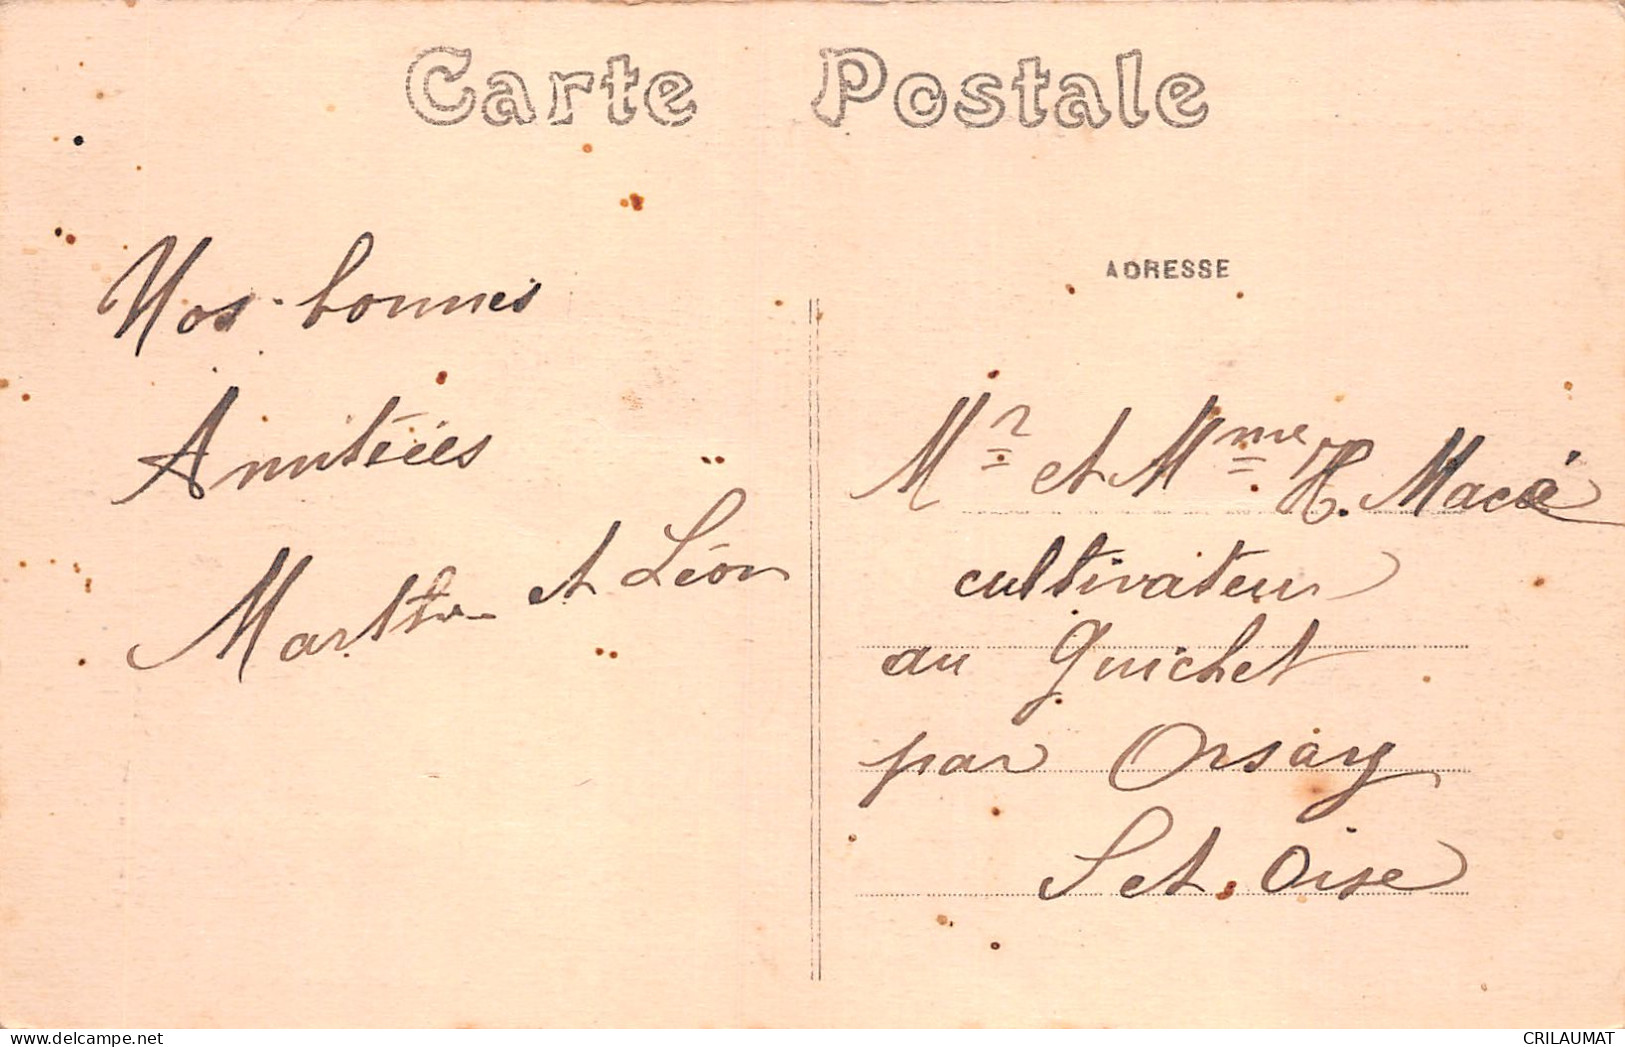 Carte Postale
Nos bonnes
Amitiées
Marthe et Léon
ADRESSE
Mr et Mme H. Macé
cultivateur
au Guichet
par Orsay
S et Oise
CRILAUMAT